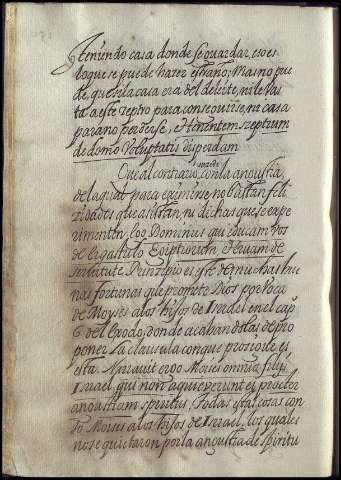 teniendo casa donde se guardar, eso es
lo que se puede hazer estraño, Mas no pue
de, que si la casa era del deleite, ni le bas
ta a este çeptro para conseguirse, ni casa
para no perderse, et tenentem sceptrum
de domo Voluptatis disperdam
Que al contrario sucede con la angustia,
de la qual para eximirse no bastan feli
zidades que asistan, ni dichas que se expe
rimenten, ego Dominus qui educam vos
de ergastulo Egiptiorum, et eruam de
servitute Principio es este de muchas bue
nas fortunas que promete Dios por boca
de Moyses a los hijos de Israel en el cap
6 del Exodo, donde acabandolas de pro
poner La clausula con que prosigue es
esta Narravit ergo Moises omnia filijs
Israel, qui non acquieverunt ei, propter
angustiam spiritus, Todas estas cosas con
to Moises a los hijos de Israel, los quales
no se quietaron por la angustia de spiritu